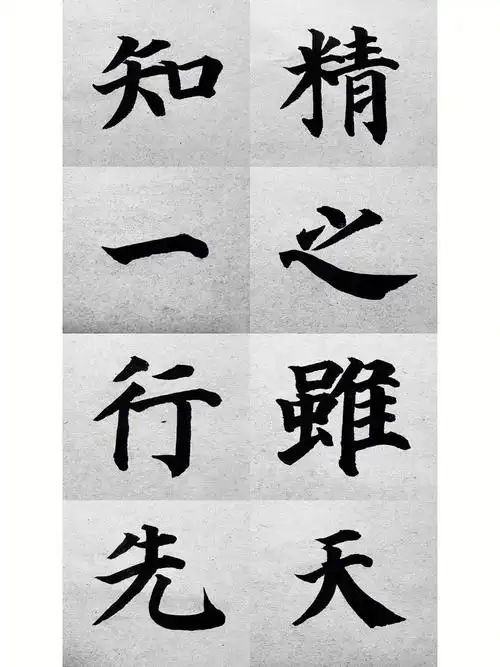 精之雖天
知一行先